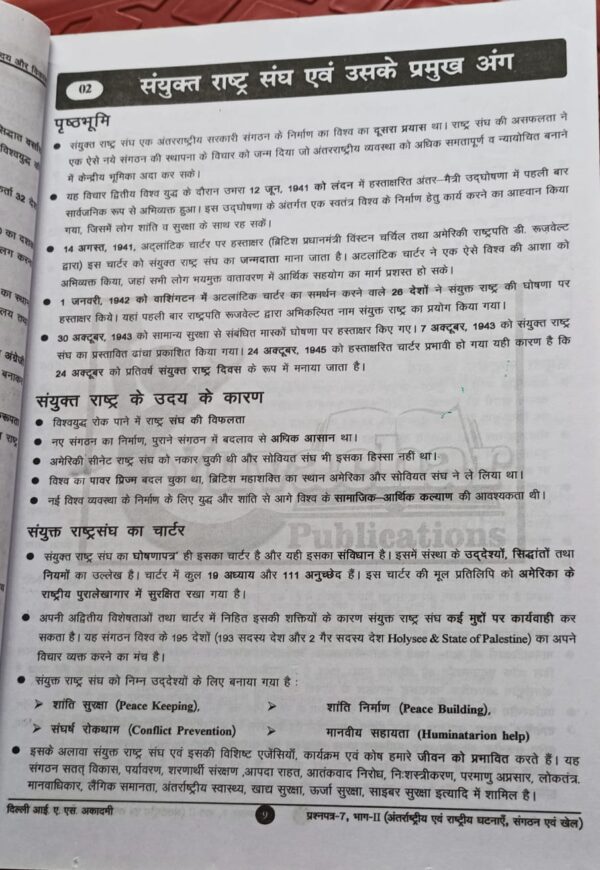 02
संयुक्त राष्ट्र संघ एवं उसके प्रमुख अंग
पृष्ठभूमि
● संयुक्त राष्ट्र संघ एक अंतरराष्ट्रीय सरकारी संगठन के निर्माण का विश्व का दूसरा प्रयास था। राष्ट्र संघ की असफलता ने
एक ऐसे नये संगठन की स्थापना के विचार को जन्म दिया जो अंतरराष्ट्रीय व्यवस्था को अधिक समतापूर्ण व न्यायोचित बनाने
में केन्द्रीय भूमिका अदा कर सके।
● यह विचार द्वितीय विश्व युद्ध के दौरान उभरा 12 जून, 1941 को लंदन में हस्ताक्षरित अंतर–मैत्री उद्घोषणा में पहली बार
सार्वजनिक रूप से अभिव्यक्त हुआ। इस उद्घोषणा के अंतर्गत एक स्वतंत्र विश्व के निर्माण हेतु कार्य करने का आह्वान किया
गया, जिसमें लोग शांति व सुरक्षा के साथ रह सकें।
● 14 अगस्त, 1941, अट्लांटिक चार्टर पर हस्ताक्षर (ब्रिटिश प्रधानमंत्री विंस्टन चर्चिल तथा अमेरिकी राष्ट्रपति डी. रूजवेल्ट
द्वारा) इस चार्टर को संयुक्त राष्ट्र संघ का जन्मदाता माना जाता है। अटलांटिक चार्टर ने एक ऐसे विश्व की आशा को
अभिव्यक्त किया, जहां सभी लोग भयमुक्त वातावरण में आर्थिक सहयोग का मार्ग प्रशस्त हो सकें।
● 1 जनवरी, 1942 को वाशिंगटन में अटलांटिक चार्टर का समर्थन करने वाले 26 देशों ने संयुक्त राष्ट्र की घोषणा पर
हस्ताक्षर किये। यहां पहली बार राष्ट्रपति रूजवेल्ट द्वारा अभिकल्पित नाम संयुक्त राष्ट्र का प्रयोग किया गया।
● 30 अक्टूबर, 1943 को सामान्य सुरक्षा से संबंधित मास्कों घोषणा पर हस्ताक्षर किए गए। 7 अक्टूबर, 1943 को संयुक्त राष्ट्र
संघ का प्रस्तावित ढांचा प्रकाशित किया गया। 24 अक्टूबर, 1945 को हस्ताक्षरित चार्टर प्रभावी हो गया यही कारण है कि
24 अक्टूबर को प्रतिवर्ष संयुक्त राष्ट्र दिवस के रूप में मनाया जाता है।
संयुक्त राष्ट्र के उदय के कारण
● विश्वयुद्ध रोक पाने में राष्ट्र संघ की विफलता
● नए संगठन का निर्माण, पुराने संगठन में बदलाव से अधिक आसान था।
● अमेरिकी सीनेट राष्ट्र संघ को नकार चुकी थी और सोवियत संघ भी इसका हिस्सा नहीं था।
● विश्व का पावर प्रिज्म बदल चुका था, ब्रिटिश महाशक्ति का स्थान अमेरिका और सोवियत संघ ने ले लिया था।
● नई विश्व व्यवस्था के निर्माण के लिए युद्ध और शांति से आगे विश्व के सामाजिक–आर्थिक कल्याण की आवश्यकता थी।
Publications
संयुक्त राष्ट्रसंघ का चार्टर
● संयुक्त राष्ट्र संघ का घोषणापत्र' ही इसका चार्टर है और यही इसका संविधान है। इसमें संस्था के उद्देश्यों, सिद्धांतों तथा
नियमों का उल्लेख है। चार्टर में कुल 19 अध्याय और 111 अनुच्छेद हैं। इस चार्टर की मूल प्रतिलिपि को अमेरिका के
राष्ट्रीय पुरालेखागार में सुरक्षित रखा गया है।
● अपनी अद्वितीय विशेषताओं तथा चार्टर में निहित इसकी शक्तियों के कारण संयुक्त राष्ट्र संघ कई मुद्दों पर कार्यवाही कर
सकता है। यह संगठन विश्व के 195 देशों (193 सदस्य देश और 2 गैर सदस्य देश Holysee & State of Palestine) का अपने
विचार व्यक्त करने का मंच है।
● संयुक्त राष्ट्र संघ को निम्न उद्देश्यों के लिए बनाया गया है :
➤ शांति सुरक्षा (Peace Keeping), ➤ शांति निर्माण (Peace Building),
➤ संघर्ष रोकथाम (Conflict Prevention) ➤ मानवीय सहायता (Huminatarion help)
● इसके अलावा संयुक्त राष्ट्र संघ एवं इसकी विशिष्ट एजेंसियों, कार्यक्रम एवं कोष हमारे जीवन को प्रभावित करते हैं। यह
संगठन सतत् विकास, पर्यावरण, शरणार्थी संरक्षण ,आपदा राहत, आतंकवाद निरोध, निःशस्त्रीकरण, परमाणु अप्रसार, लोकतंत्र,
मानवाधिकार, लैंगिक समानता, अंतर्राष्ट्रीय स्वास्थ्य, खाद्य सुरक्षा, ऊर्जा सुरक्षा, साइबर सुरक्षा इत्यादि में शामिल है।
दिल्ली आई. ए. एस. अकादमी
9
प्रश्नपत्र-7, भाग-II (अंतर्राष्ट्रीय एवं राष्ट्रीय घटनाएँ, संगठन एवं खेल)